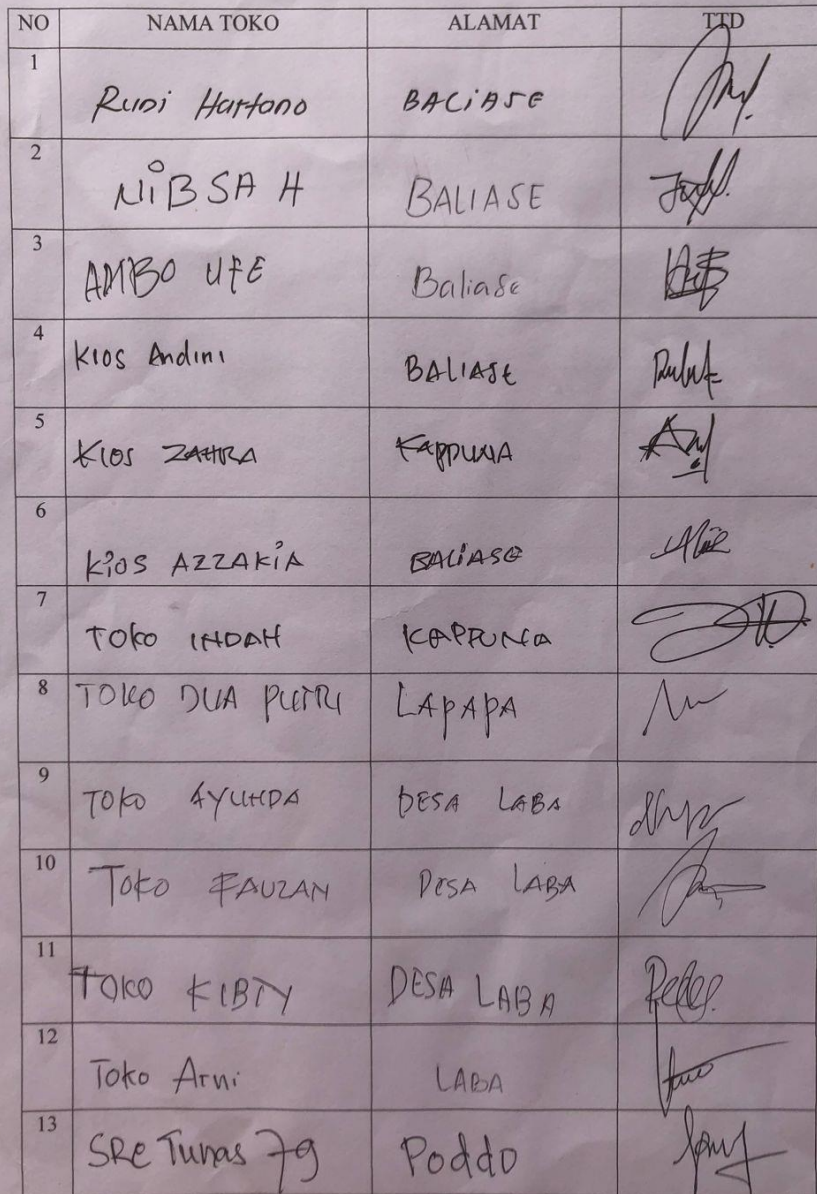 NO NAMA TOKO ALAMAT TTD
1 Rudi Hartono BALIASE
2 NIBSAH BALIASE
3 AMBO UFE Baliase
4 KIOS Andini BALIASE
5 KIOS ZAHRA KAPPUNA
6 KiOS AZZAKiA BALIASE
7 TOKO INDAH KAPPUNA
8 TOKO DUA PUTRI LAPAPA
9 TOKO AYUNDA DESA LABA
10 TOKO FAUZAN DESA LABA
11 TOKO KIBTY DESA LABA
12 Toko Arni LABA
13 SRC Tunas 79 Poddo